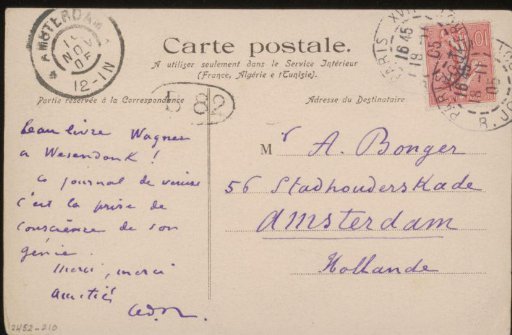 AMSTERDAM
NOV
12-1N
Carte postale.
A utiliser seulement dans le Service Intérieur
(France, Algérie e Tunisie).
Partie réservée à la Correspondance
Adresse du Destinataire
B 82
PARIS XVII
16 45
18
Beau livre Wagner
a Wesendonk !
Ce journal de venise
c'est la prise de
conscience de son
génie.
Merci, merci
amitié
Mr A. Bonger
56 Stadhouderskade
Amsterdam
Hollande
2452-210